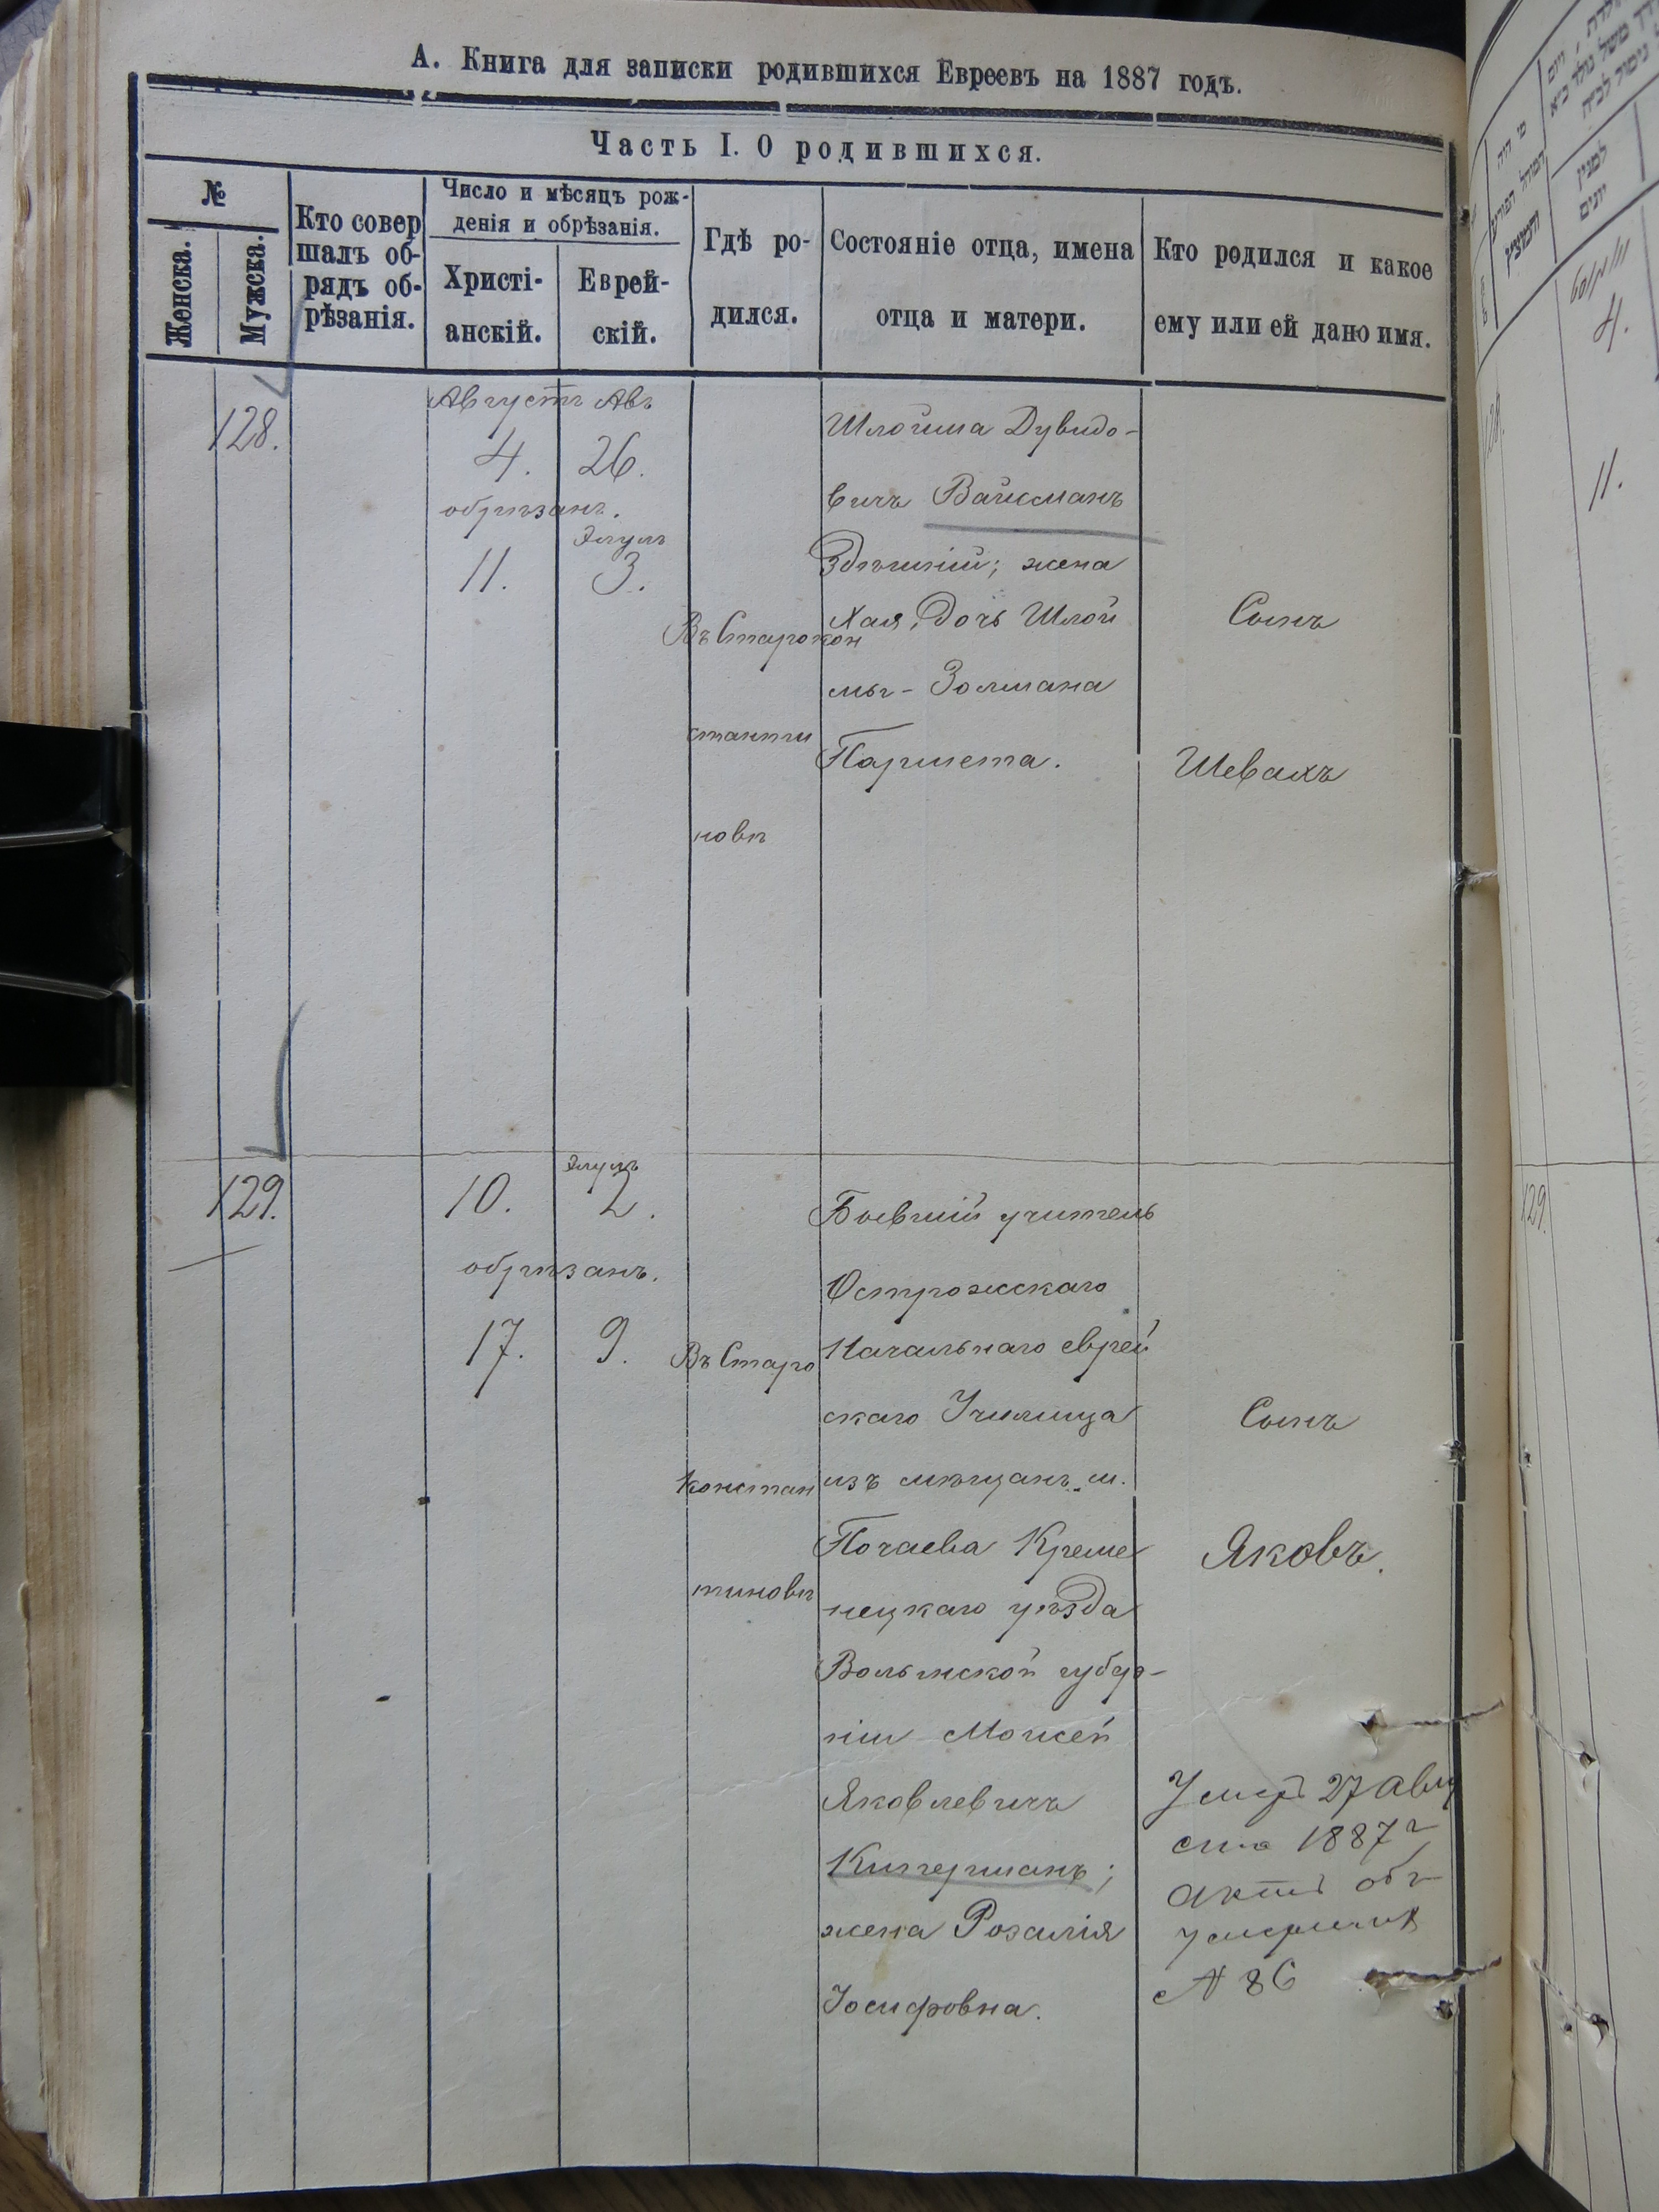 А. Книга для записки родившихся Евреевъ на 1887 годъ.
Часть I. О родившихся.
№
Женска.
Мужска.
Кто совер
шалъ об-
рядъ об-
рѣзанія.
Число и мѣсяцъ рож-
денія и обрѣзанія.
Христі-
анскій.
Еврей-
скій.
Гдѣ ро-
дился.
Состояніе отца, имена
отца и матери.
Кто родился и какое
ему или ей дано имя.
128.
Августъ Авъ
4. 26.
обрѣзанъ.
Элулъ
11. 3.
Въ Старокон
станти
новѣ
Шлойма Дувидо-
вичъ Вайсманъ
Здѣшній; жена
Хая, дочь Шлой
мы-Золмана
Пармета.
Сынъ
Шевахъ
129.
Элулъ
10. 2.
обрѣзанъ.
17. 9.
Въ Старо
констан
тиновѣ
Бывшій учитель
Острожскаго
Начальнаго еврей
скаго Училища
изъ мѣщанъ м.
Почаева Креме
нецкаго уѣзда
Волынской губер-
ніи Моисей
Яковлевичъ
Кигерманъ;
жена Розалія
Іосифовна.
Сынъ
Яковъ.
Умеръ 27 Авгу
ста 1887 г
актъ объ
умершихъ
№ 86
4.
11.
129.